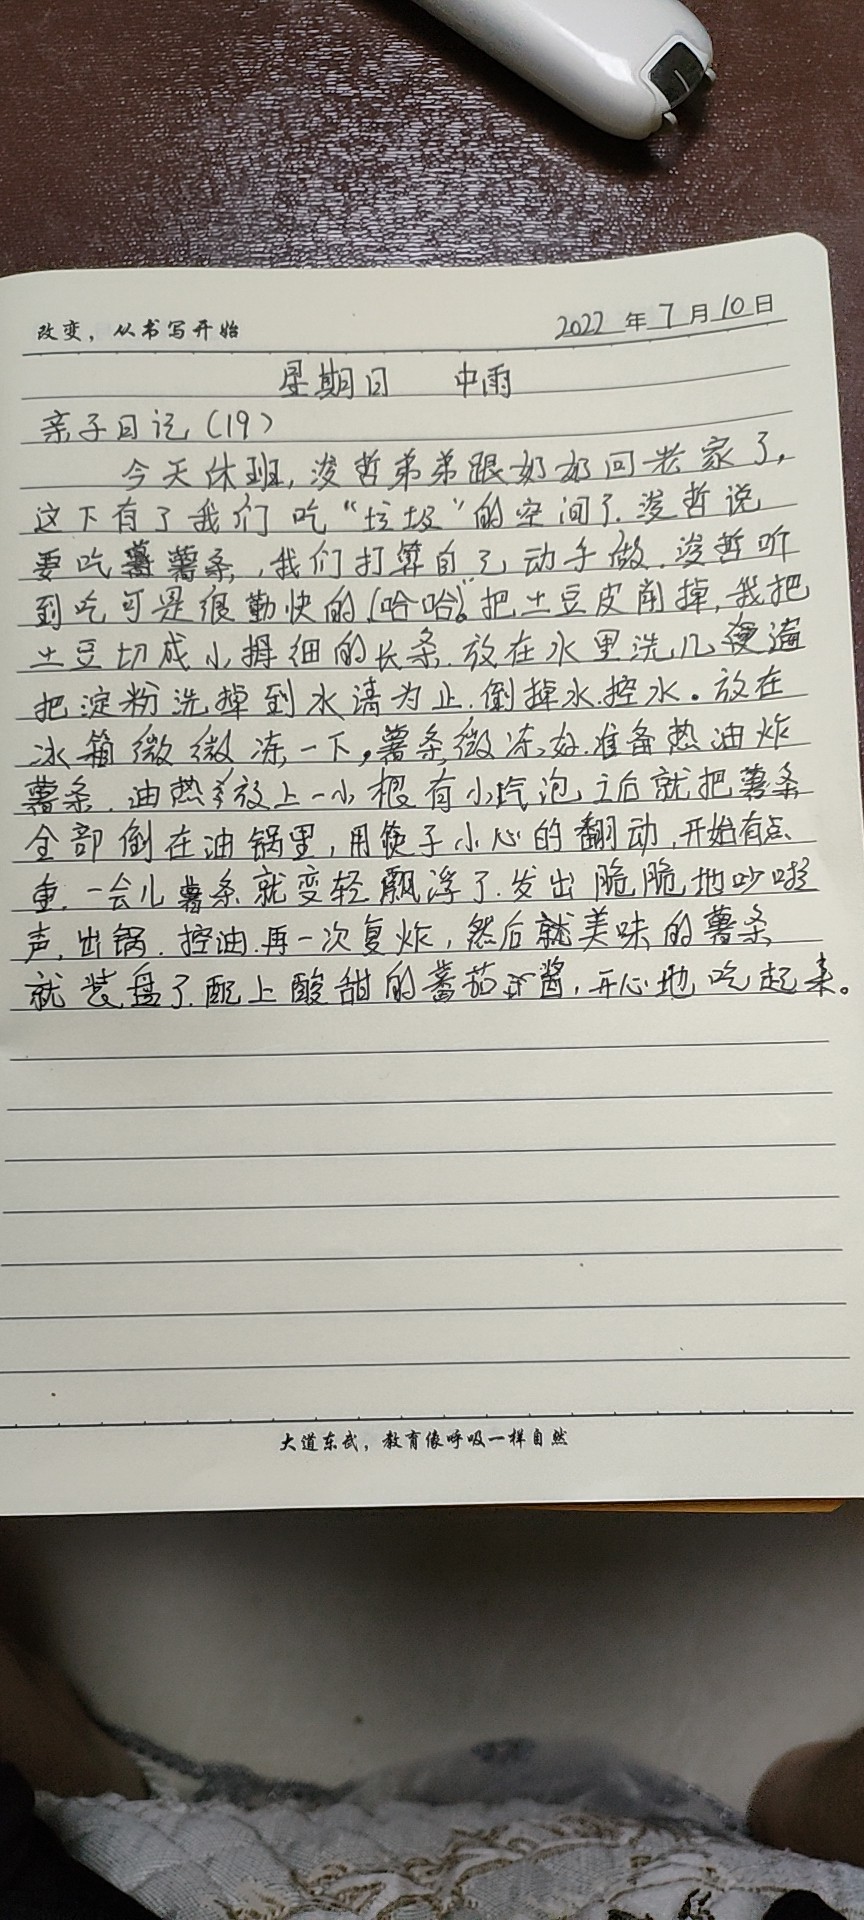 改变，从书写开始
2022年7月10日
星期日 中雨
亲子日记（19）
今天休班，浚哲弟弟跟奶奶回老家了，
这下有了我们吃“垃圾”的空间了.浚哲说
要吃薯条，我们打算自己动手做.浚哲听
到吃可是很勤快的（哈哈）。把土豆皮削掉，我把
土豆切成小拇细的长条.放在水里洗几遍
把淀粉洗掉到水清为止.倒掉水.控水。放在
冰箱微微冻一下，薯条微冻好.准备热油炸
薯条.油热放上一小根有小汽泡之后就把薯条
全部倒在油锅里，用筷子小心的翻动.开始有点
重.一会儿薯条就变轻飘浮了.发出脆脆地吵啦
声.出锅.控油.再一次复炸，然后就美味的薯条
就装盘了.配上酸甜的蕃茄酱，开心地吃起来。
大道东武，教育像呼吸一样自然